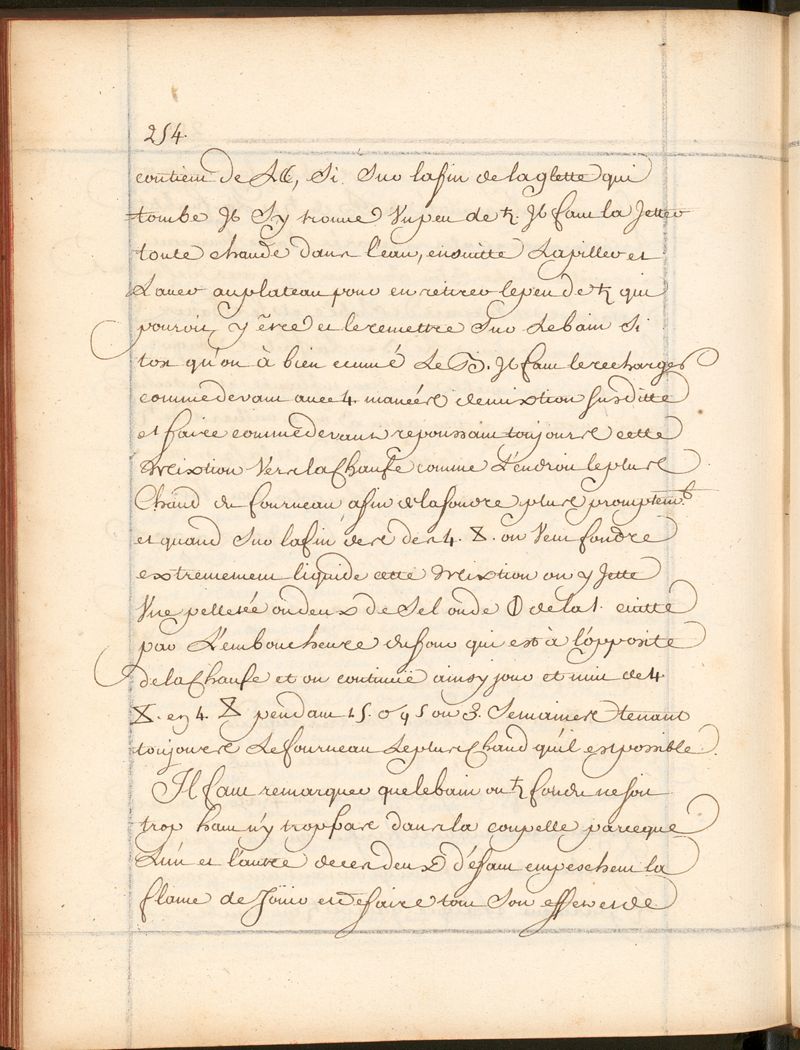 254.
contient de , Si Sur lafin de laglette qui
tombe Jl Sy trouue Vnpeu de ♄. Jl faut la Jetter
toute chaude dans l'eau, ensuitte Lapiller et
Lauer auplateau pour en retirer lepeu de ♄ qui
pouroit y être et leremettre Sur Lebain Si
tot qu'on à bien ecumé Le . Jl faut lerecharger
commedeuant auec 4. demixtion susditte
et faire commedeuant repoussant toujours cette
Mixtion Vers laChaufe comme L'endroit leplus
Chaud du fourneau afin delafondre plus promptemt
et quand Sur lafin des 4. ⧖. on Veut fondre
extremement liquide cette Mixtion on y Jette
Vne pellerée oudeux de Sel oude de la 1. ciatte
par L'embouchure dufour qui est à l'opposite
delaChaufe et on continüe ainsy jour et nuit de 4
⧖. en 4. ⧖ pendant 15. ou 3. Semaines tenant
toujours Lefourneau LeplusChaud qu'il estpossible.
Jl faut remarquer quelebain ou ♄ fondu nesoit
trop haut n'y tropbas dans la coupelle parceque
L'un et l'autre deces deux défaut empeschent la
flame de Joüir et defaire tout Son effet et de